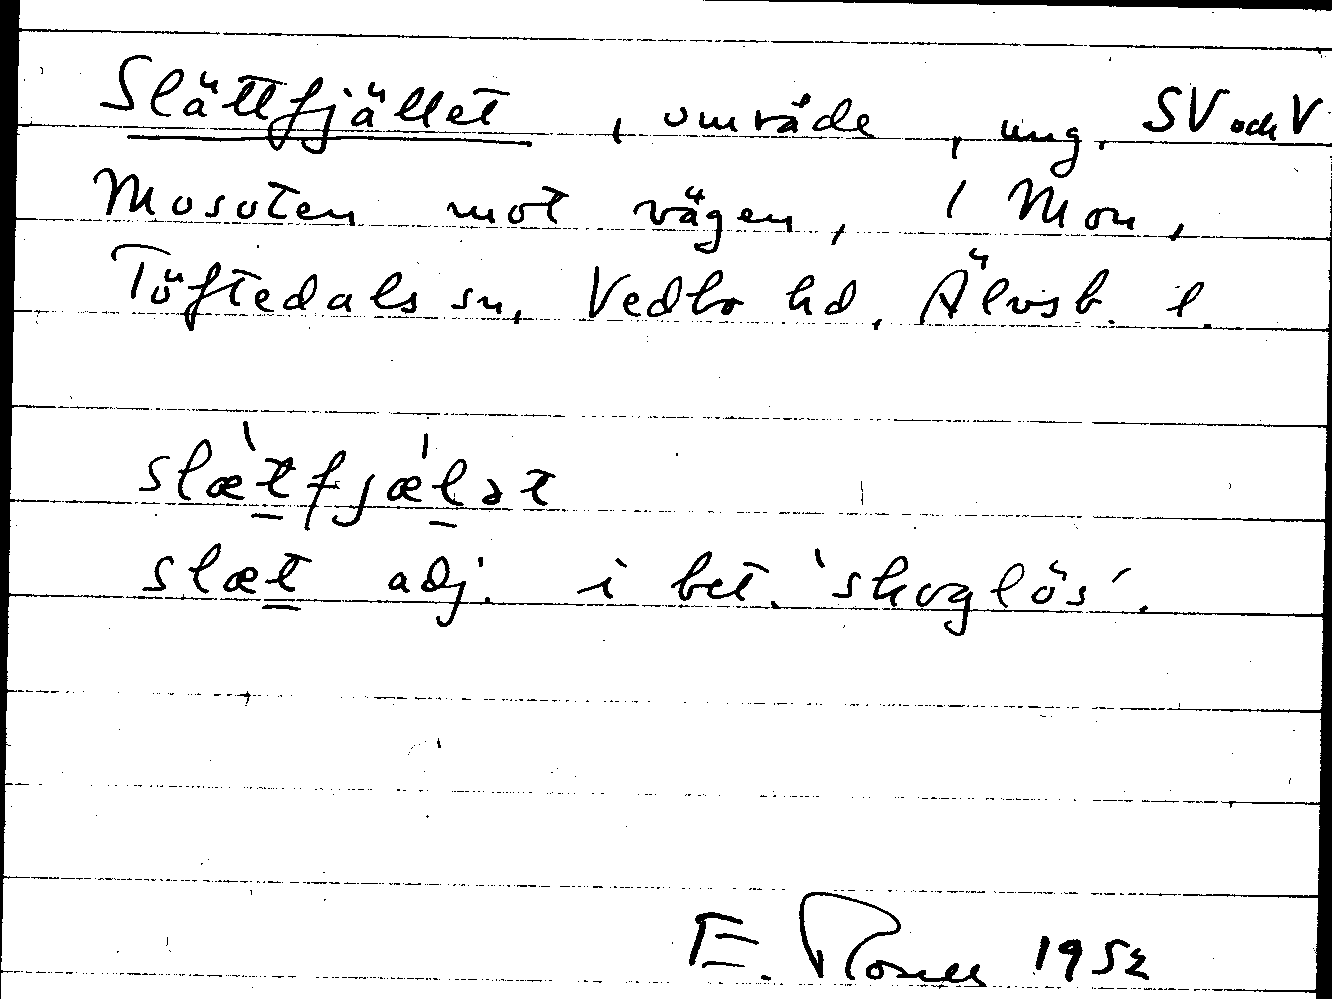 Slättfjället, område, ung. SV och V
Mosoten mot vägen, 1 Mon,
Töftedals sn, Vedbo hd, Älvsb. l.
slæ̀t̲fjæ̍l̲ət
slæt̲ adj. i bet. 'skoglös'.
E. 1952